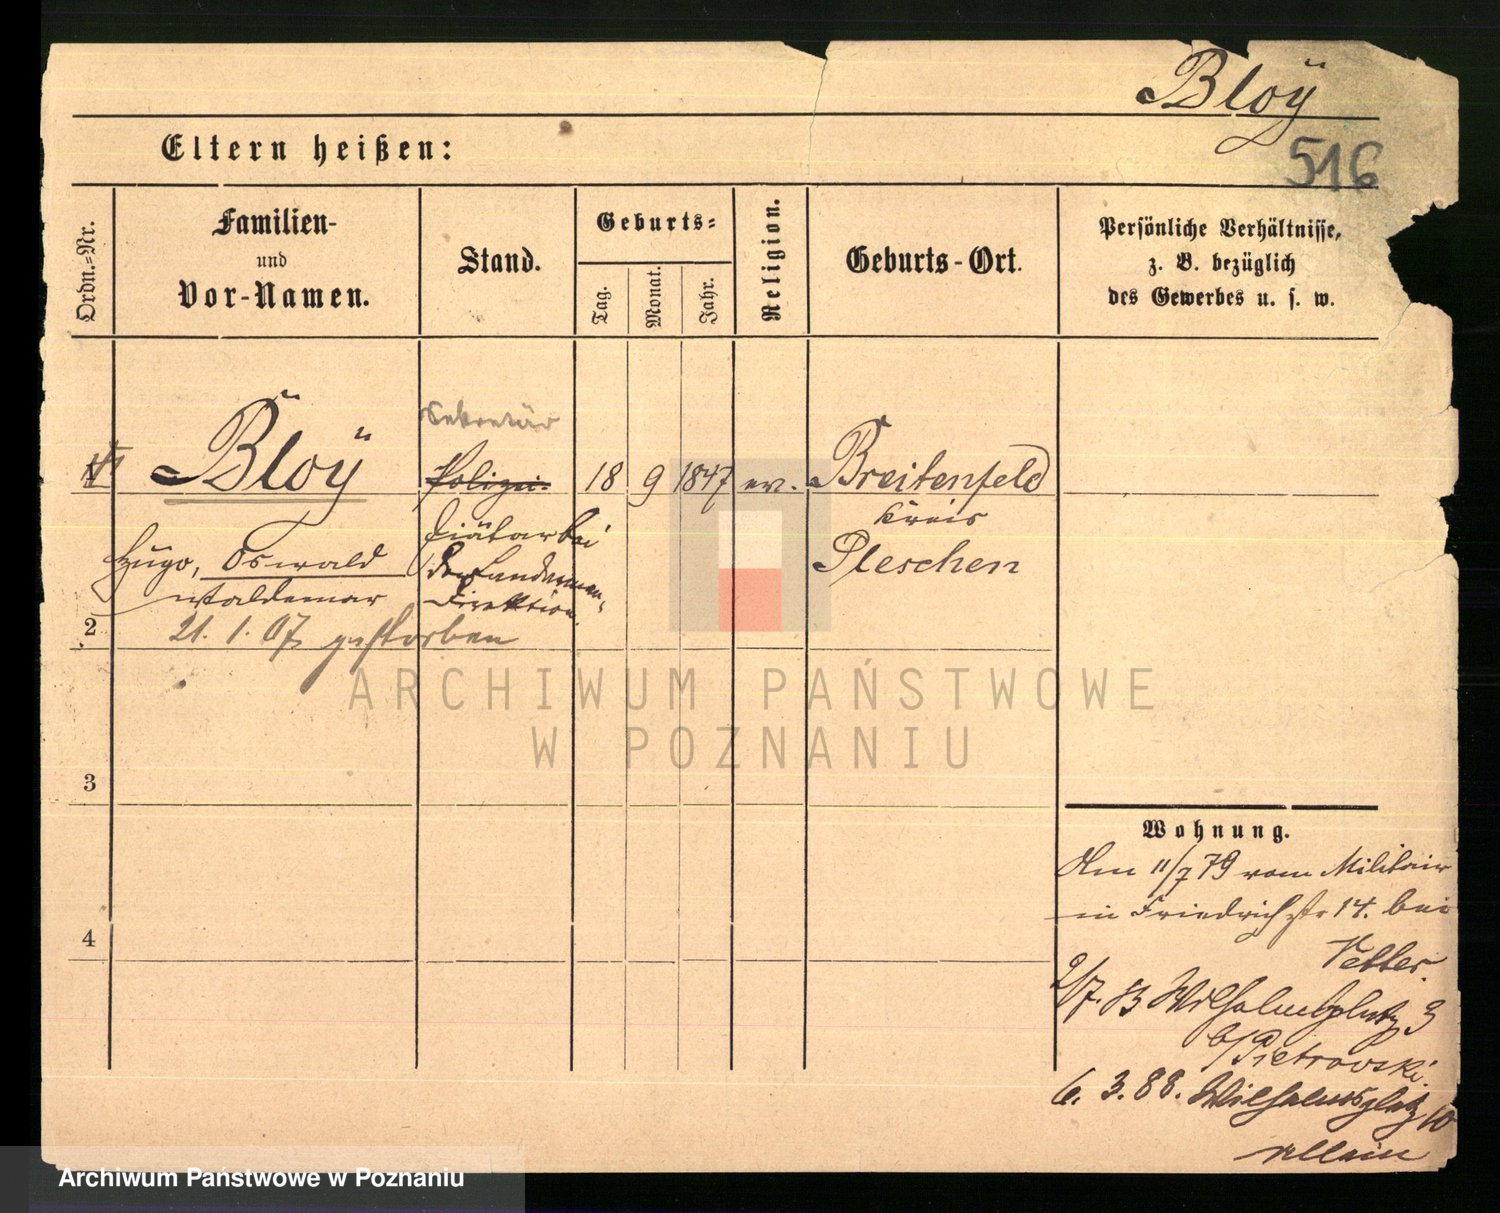 Bloÿ
516
Eltern heißen:
Ordn.-Nr.
Familien-
und
Vor-Namen.
Stand.
Geburts-
Tag.
Monat.
Jahr.
Religion.
Geburts-Ort.
Persönliche Verhältnisse,
z. B. bezüglich
des Gewerbes u. s. w.
Sekretär
Bloÿ
Polizei-
18
9
1847
ev.
Breitenfeld
Kreis
Pleschen
Hugo, Oswald
Waldemar
Diätar bei
der Landarmen-
Direktion.
2
21. 1. 07 gestorben
3
4
Wohnung.
Am 11/7 79 vom Militair
in Friedrichstr 14. bei
Vetter.
2/7. 83 Wilhelmsplatz 3
b/ Pietrowski.
6. 3. 88. Wilhelmsplatz 10
allein
ARCHIWUM PAŃSTWOWE
W POZNANIU
Archiwum Państwowe w Poznaniu